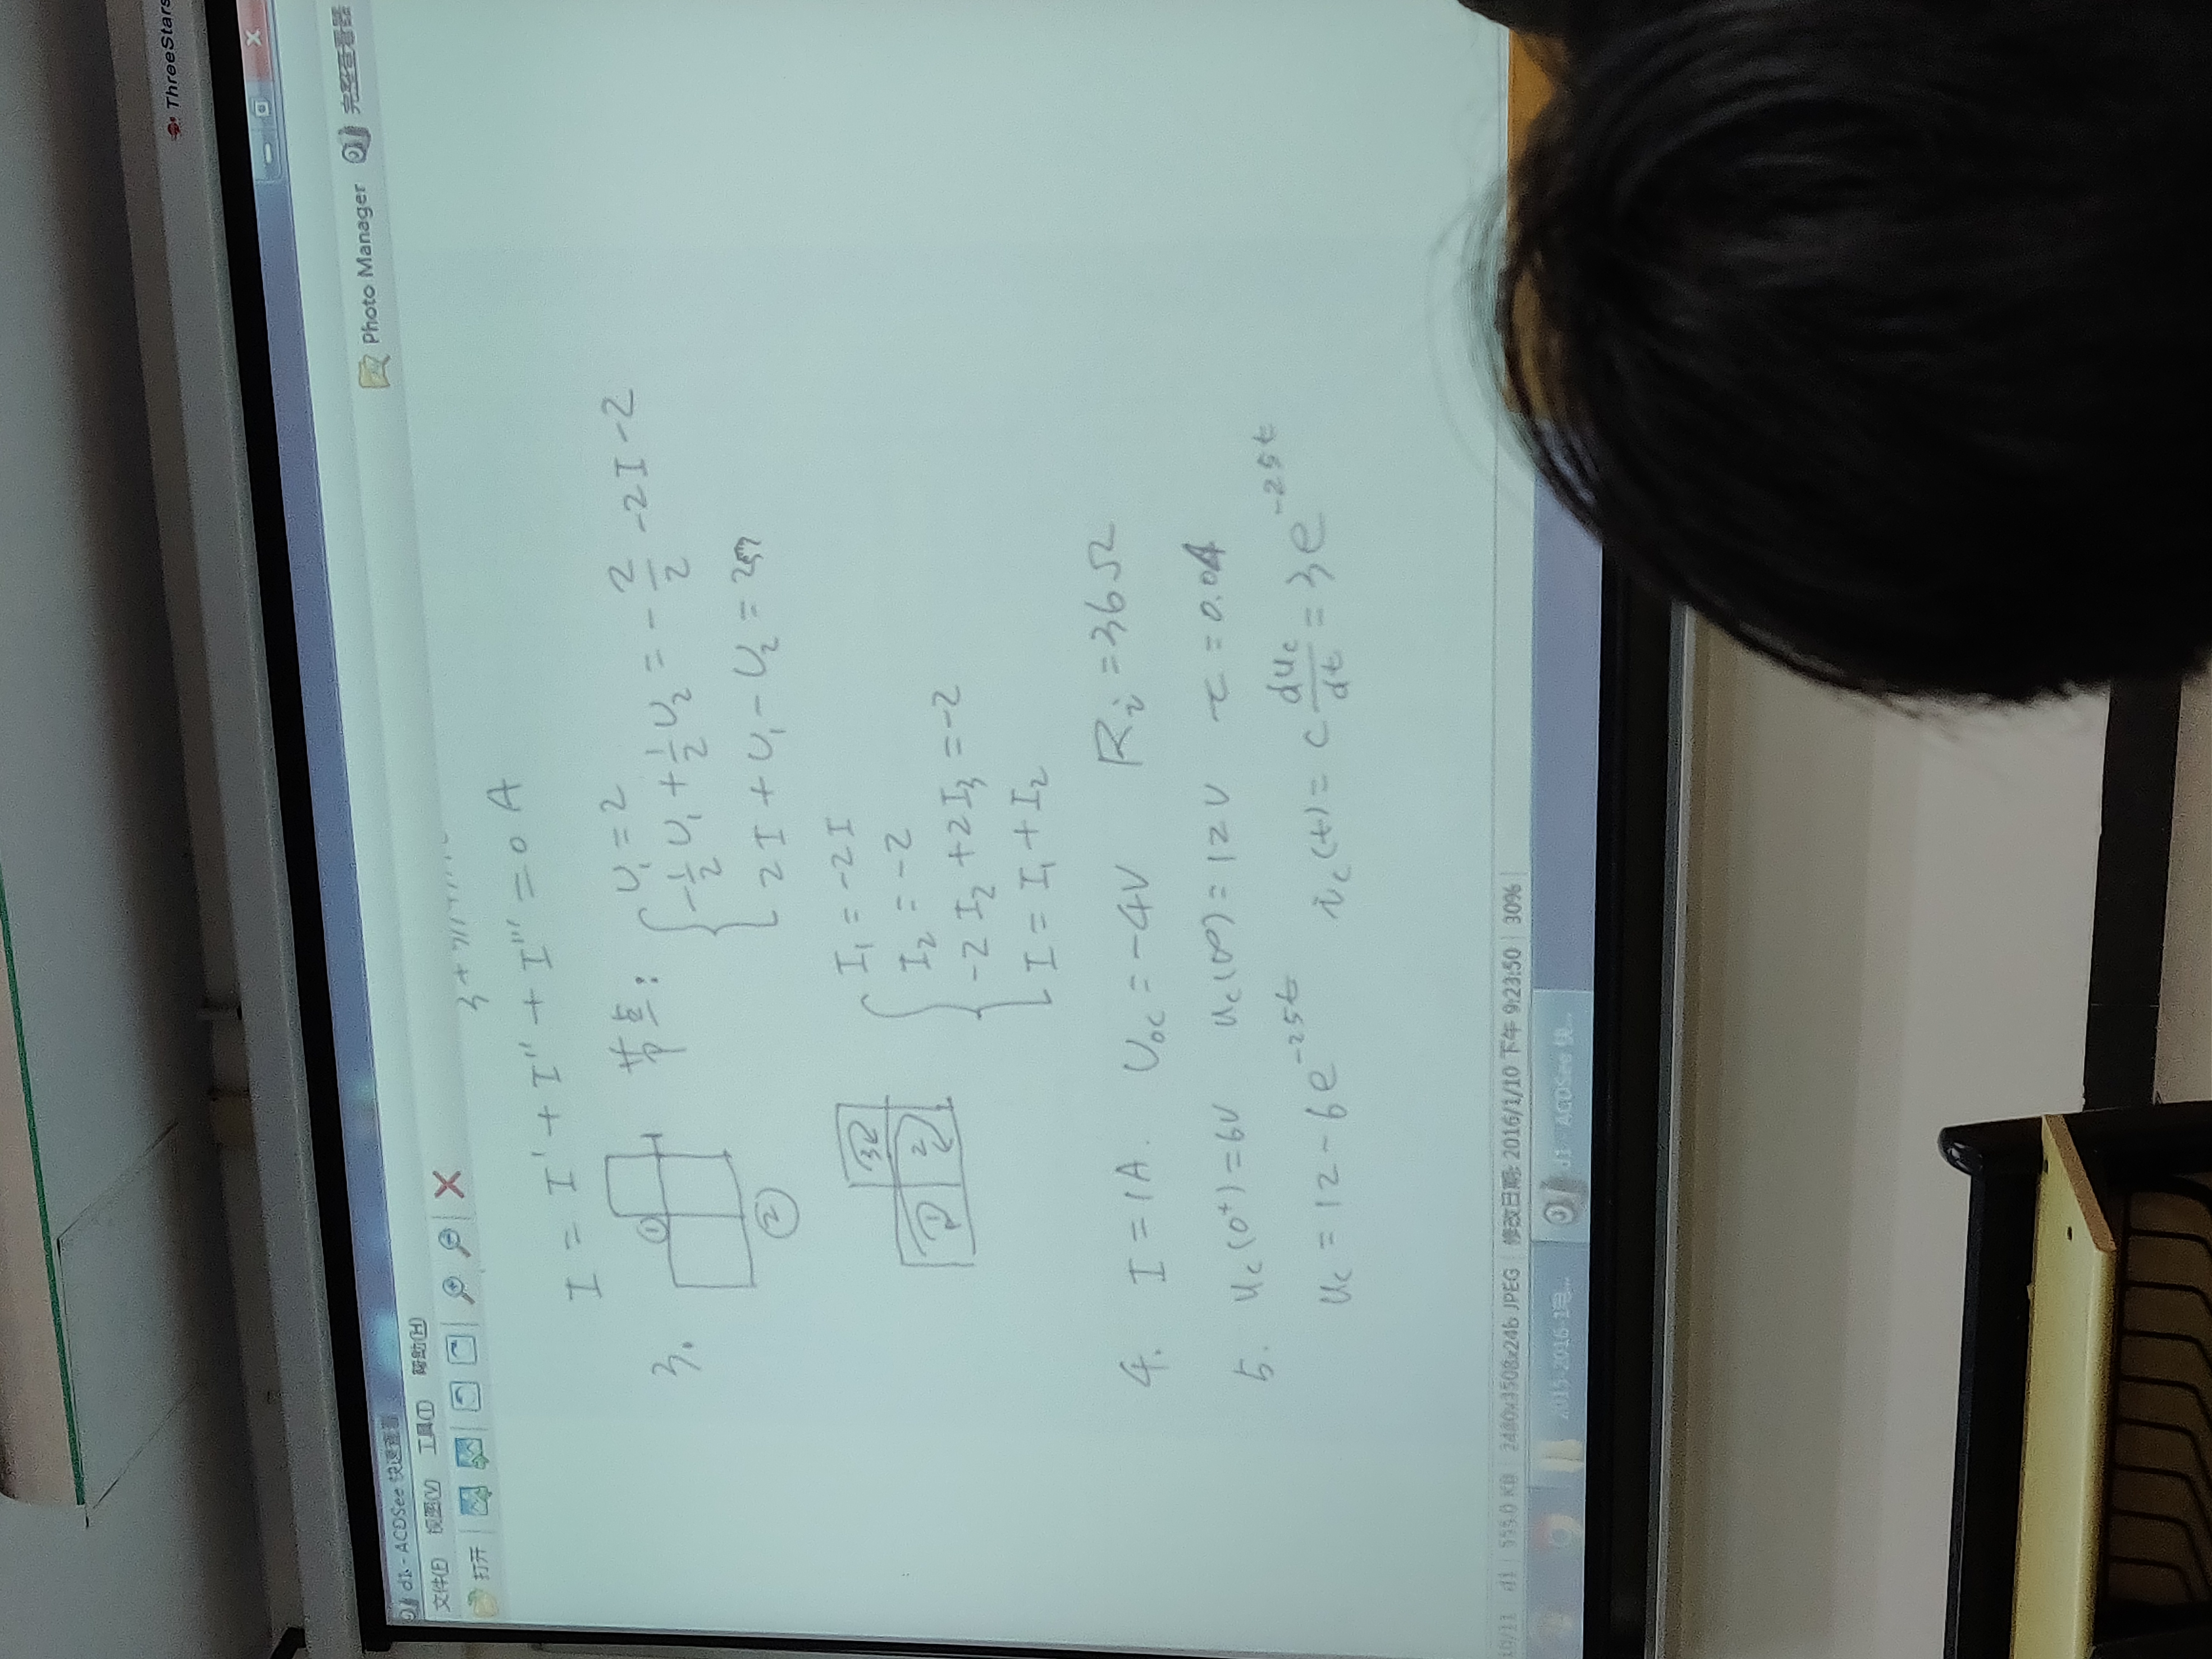 ThreeStars
d1 - ACDSee 快速查看
Photo Manager 完整查看器
文件(F) 视图(V) 工具(T) 帮助(H)
打开
I = I' + I'' + I''' = 0 A
3. ① ② 节点: U₁ = 2
-1/2 U₁ + 1/2 U₂ = -2/2 - 2I - 2
2I + U₁ - U₂ = 2
1 2 3
I₁ = -2I
I₂ = -2
-2I₂ + 2I₃ = -2
I = I₁ + I₂
4. I = 1A. U_oc = -4V R_i = 36Ω
5. u_c(0⁺) = 6V u_c(∞) = 12V τ = 0.04
u_c = 12 - 6e^(-25t) i_c(t) = C du_c/dt = 3e^(-25t)
10/11 d1 555.0 KB 2480x3508x24b JPEG 修改日期: 2016/1/10 下午 9:23:50 30%
2015-2016-1电... d1 - ACDSee 快...